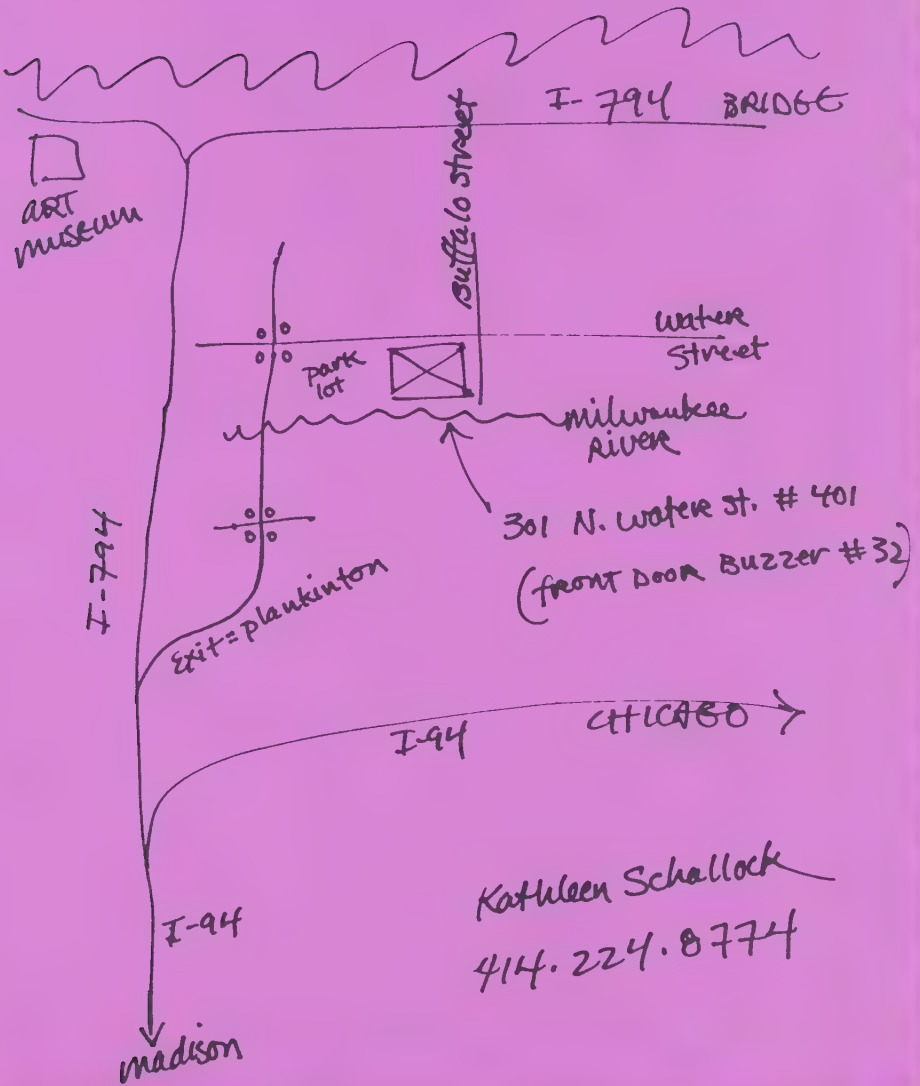 I-794 BRIDGE
ART
museum
Buffalo street
water
street
park
lot
milwaukee
river
301 N. water st. # 401
(front Door Buzzer #32)
I-794
Exit = plankinton
I-94
CHICAGO
Kathleen Schallock
414.224.8774
I-94
madison